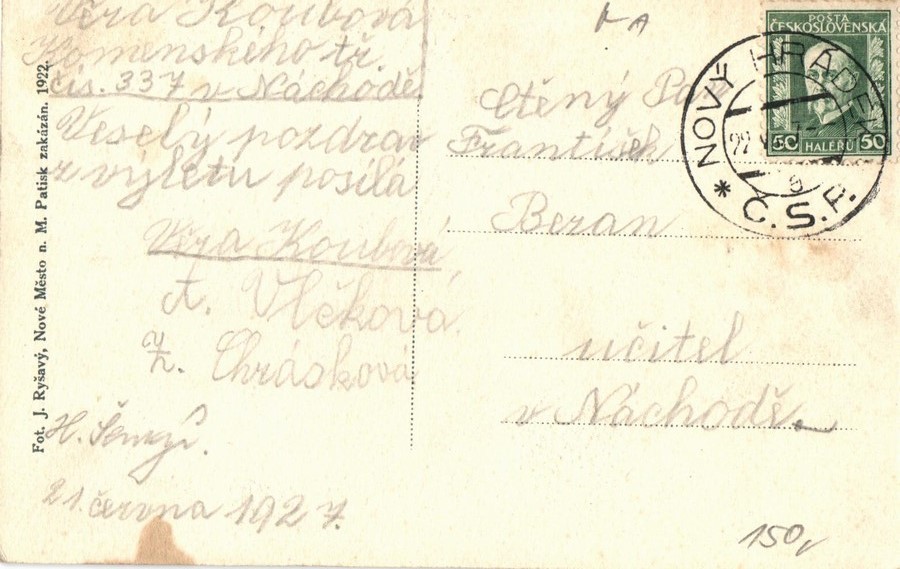 Věra Koubová
Komenského tř.
čís. 337 v Náchodě
Veselý pozdrav
z výletu posílá
Věra Koubová
A. Vlčková.
Z. Chrásková
H.
21. června 1927.
Fot. J. Ryšavý, Nové Město n. M. Patisk zakázán. 1922.
POŠTA
ČESKOSLOVENSKÁ
50 HALÉŘŮ 50
NOVÝ HRÁDEK
Č.S.R.
Ctěný Pan
František
Beran
učitel
v Náchodě
150,